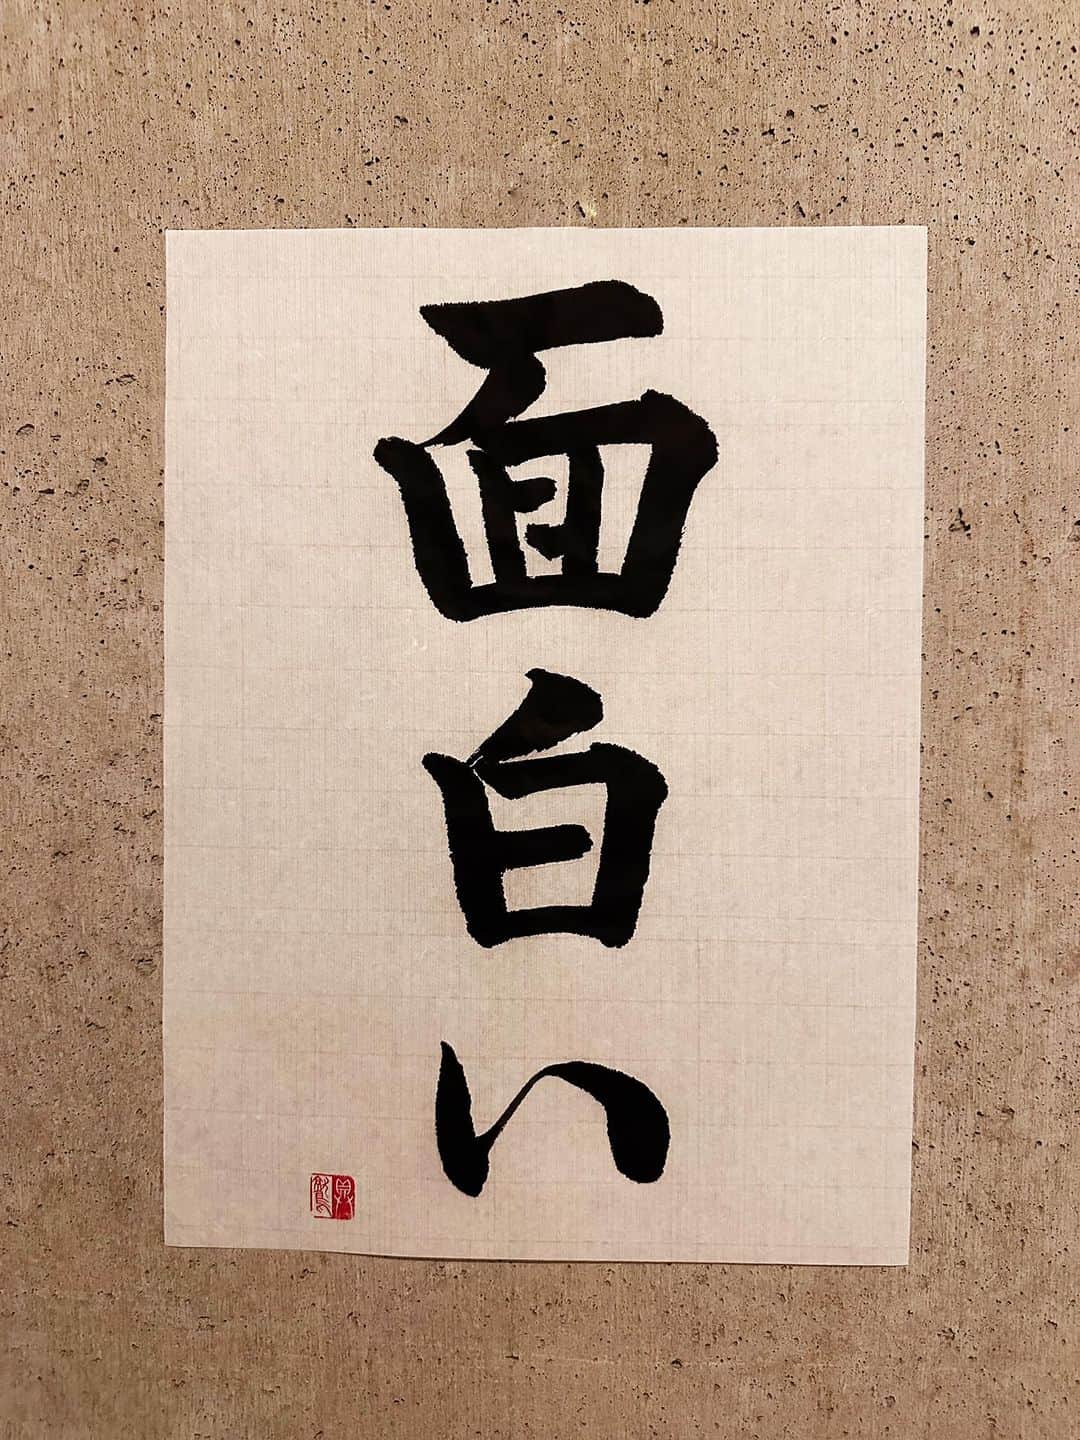 面白い